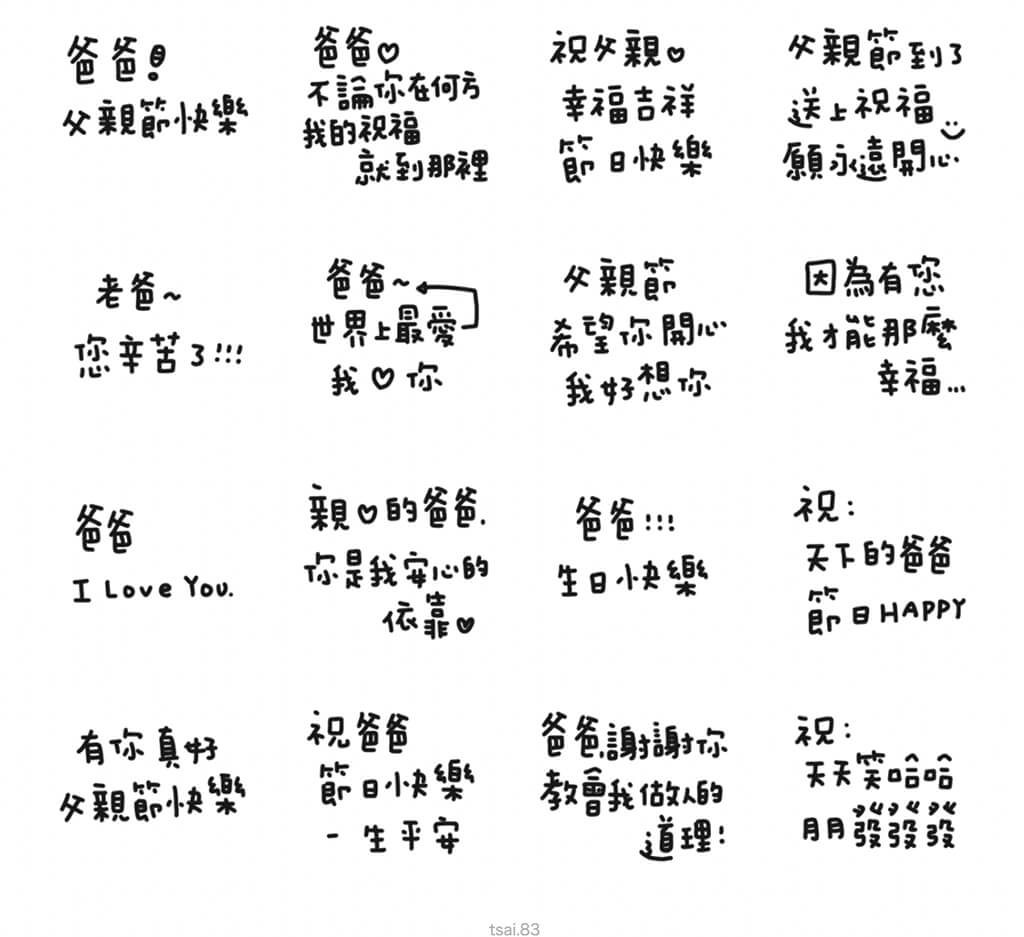 爸爸!
父親節快樂
爸爸♡
不論你在何方
我的祝福
就到那裡
祝父親♡
幸福吉祥
節日快樂
父親節到了
送上祝福
願永遠開心
老爸~
您辛苦了!!!
爸爸~
世界上最愛
我♡你
父親節
希望你開心
我好想你
因為有您
我才能那麼
幸福...
爸爸
I Love You.
親♡的爸爸.
你是我安心的
依靠♡
爸爸!!!
生日快樂
祝:
天下的爸爸
節日HAPPY
有你真好
父親節快樂
祝爸爸
節日快樂
一生平安
爸爸.謝謝你
教會我做人的
道理!
祝:
天天笑哈哈
月月發發發
tsai.83